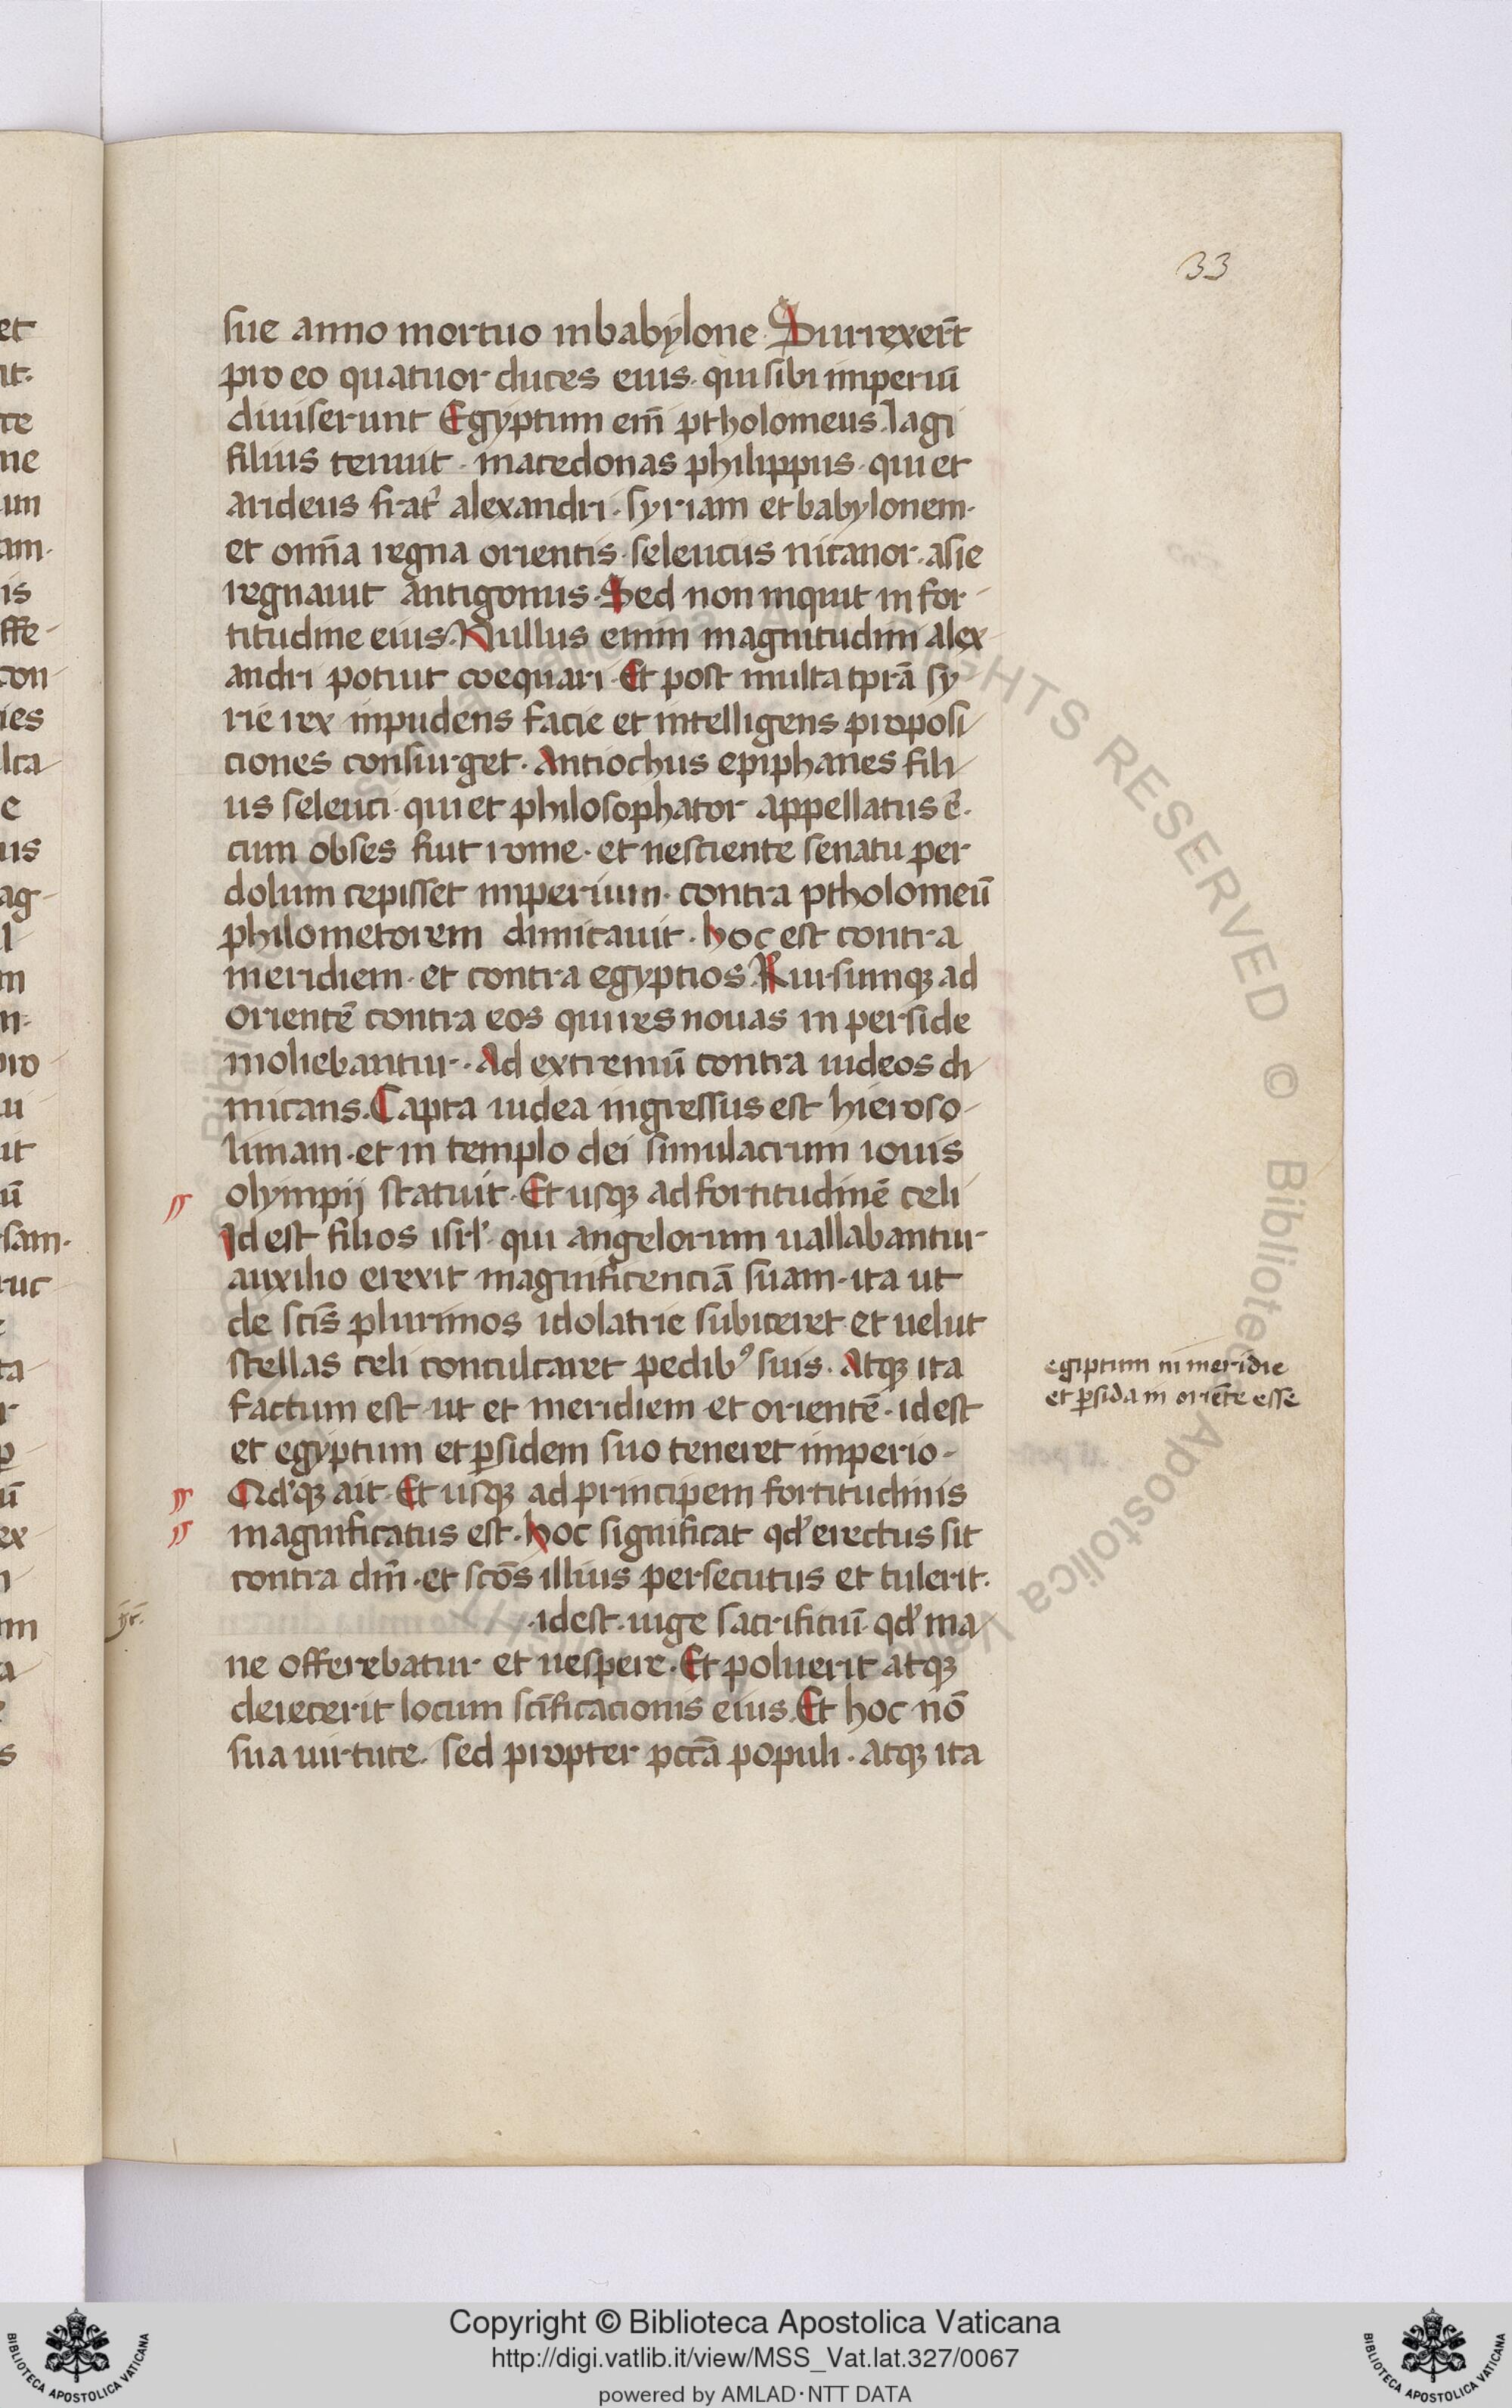 33
sue anno mortuo inbabylone. Surrexer̄t
pro eo quatuor duces eius. qui sibi imperiū
diuiserunt Egyptum em̄ ptholomeus. lagi
filius tenuit. macedonas philippus. qui et
arideus frat̓ alexandri. syriam et babylonem.
et om̄ia regna orientis. seleucus nicanor. asie
regnauit antigonus. Sed non inquit in for-
titudine eius. Nullus enim magnitudini alex-
andri potuit coequari. Et post multa tpr̄a sy/
rie rex inpudens facie et intelligens proposi/
ciones consurget. Antiochus epiphanes fili/
us seleuci. qui et philosophator appellatus ē.
cum obses fuit rome. et nesciente senatu per
dolum cepisset imperium. contra ptholomeū
philometorem dimicauit. hoc est contra
meridiem. et contra egyptios. Rursumqꝫ ad
orientē contra eos qui res nouas in perside
moliebantur. Ad extremū contra iudeos di/
micans. Capta iudea ingressus est hieroso-
limam. et in templo dei simulacrum iouis
olympij statuit. Et usqꝫ ad fortitudinē celi
Id est filios isrl̓. qui angelorum uallabantur
auxilio erexit magnificenciā suam. ita ut
de scīs plurimos idolatrie subiceret et uelut
stellas celi conculcaret pedibꝰ suis. Atqꝫ ita
factum est ut et meridiem et orientē. id est
et egyptum et ꝑsidem suo teneret imperio-
egiptum in meridie
et ꝑsida in oriēte esse
Qd̓qꝫ ait. Et usqꝫ ad principem fortitudinis
magnificatus est. hoc significat qd̓ erectus sit
contra dm̄. et scōs illius persecutus et tulerit.
. id est. iuge sacrificiū. qd̓ ma/
ne offerebatur et uespere. Et poluerit atqꝫ
deiecerit locum scīficacionis eius. Et hoc nō
sua uirtute. sed propter pccā populi. atqꝫ ita
Copyright © Biblioteca Apostolica Vaticana
http://digi.vatlib.it/view/MSS_Vat.lat.327/0067
powered by AMLAD·NTT DATA